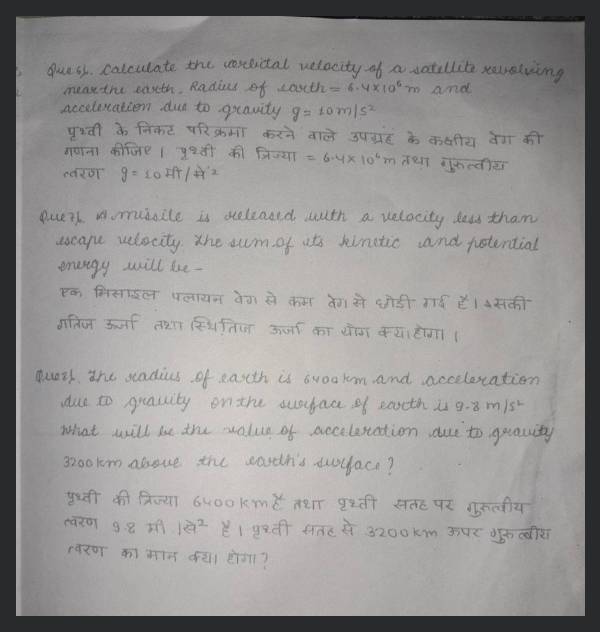 Que 6). Calculate the orbital velocity of a satellite revolving
near the earth. Radius of earth = 6.4×10⁶ m and
acceleration due to gravity g = 10 m/s²
पृथ्वी के निकट परिक्रमा करने वाले उपग्रह के कक्षीय वेग की
गणना कीजिए । पृथ्वी की त्रिज्या = 6.4×10⁶ m तथा गुरुत्वीय
त्वरण g = 10 मी/से²
Que 7). A missile is released with a velocity less than
escape velocity. The sum of its kinetic and potential
energy will be -
एक मिसाइल पलायन वेग से कम वेग से छोडी गई है । इसकी
गतिज ऊर्जा तथा स्थितिज ऊर्जा का योग क्या होगा ।
Que 8). The radius of earth is 6400 km and acceleration
due to gravity on the surface of earth is 9.8 m/s²
What will be the value of acceleration due to gravity
3200 km above the earth's surface?
पृथ्वी की त्रिज्या 6400 km है तथा पृथ्वी सतह पर गुरुत्वीय
त्वरण 9.8 मी /से² है । पृथ्वी सतह से 3200 km ऊपर गुरुत्वीय
त्वरण का मान क्या होगा ?